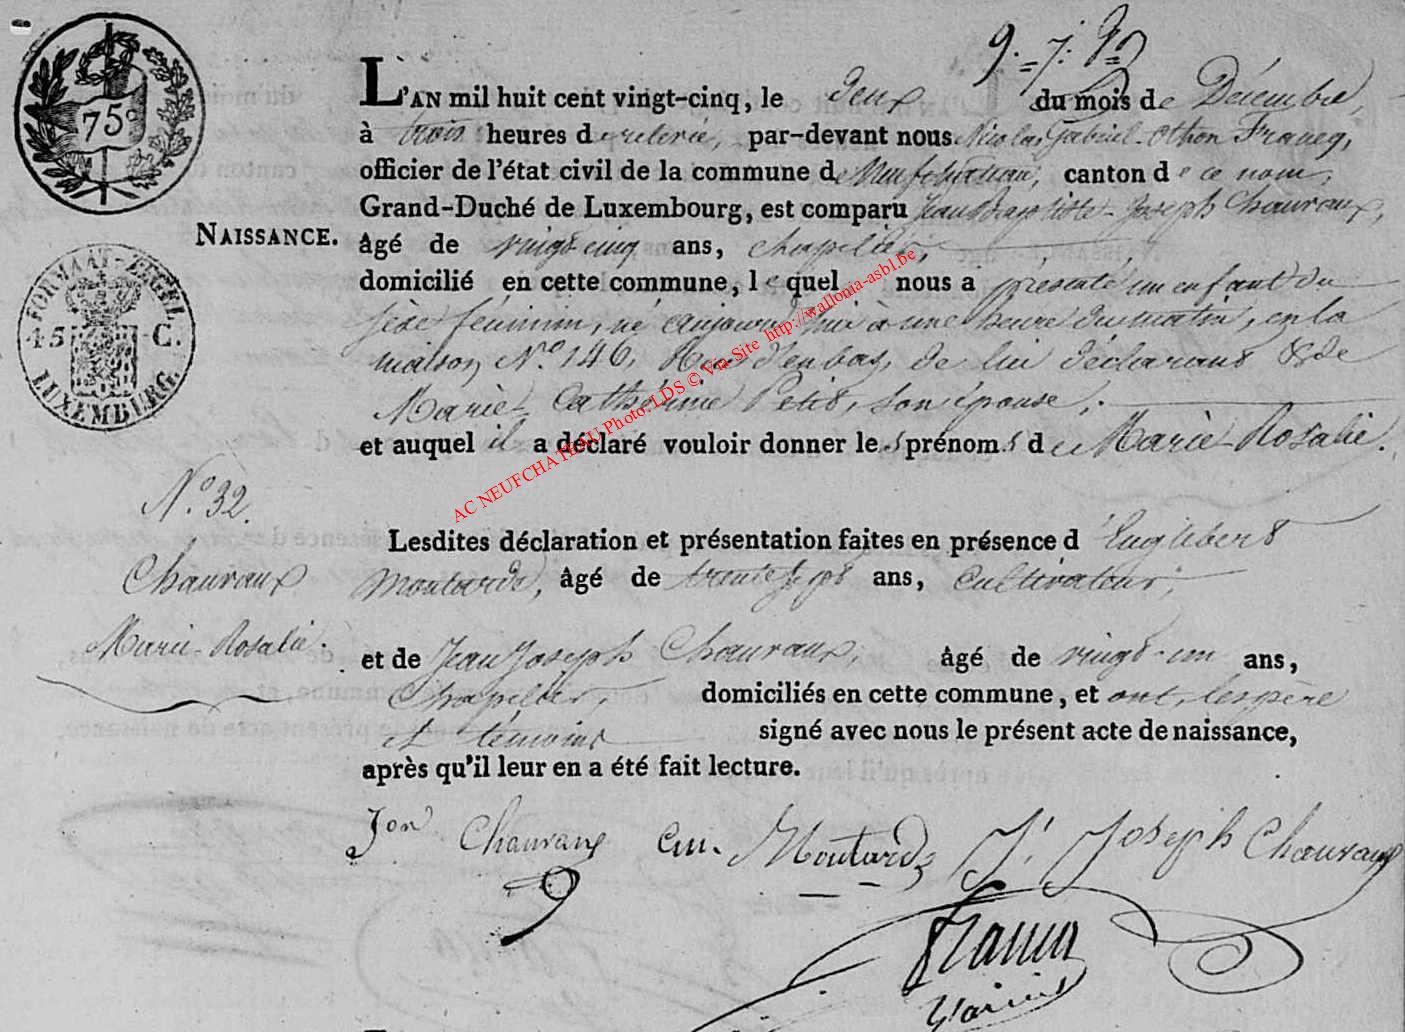 75 c
L'AN mil huit cent vingt-cinq, le Deux du mois de Décembre,
à trois heures de relevée, par-devant nous Nicolas Gabriel-Othon Francq,
officier de l'état civil de la commune de Neufchâteau, canton de ce nom,
Grand-Duché de Luxembourg, est comparu Jean Baptiste-Joseph Chauvaux,
NAISSANCE.
âgé de vingt cinq ans, chapelier,
domicilié en cette commune, lequel nous a présenté un enfant du
FORMAAT-ZEGEL
45 C.
LUXEMBURG.
sexe féminin, né aujourd'hui à une heure du matin, en la
maison No. 146, Rue d'enbas, de lui déclarant & de
Marie-Catherine Petit, son épouse,
et auquel il a déclaré vouloir donner les prénoms de Marie-Rosalie.
AC NEUFCHATEAU Photo: LDS © Via Site http://wallonia-asbl.be
No. 32.
Chauvaux
Marie-Rosalie.
Lesdites déclaration et présentation faites en présence d'Englebert
Moutarde, âgé de trente sept ans, cultivateur,
et de Jean Joseph Chauvaux, âgé de vingt-un ans,
Chapelier, domiciliés en cette commune, et ont, les père
et témoins signé avec nous le présent acte de naissance,
après qu'il leur en a été fait lecture.
Jon Chauvaux Moutarde J. Joseph Chauvaux